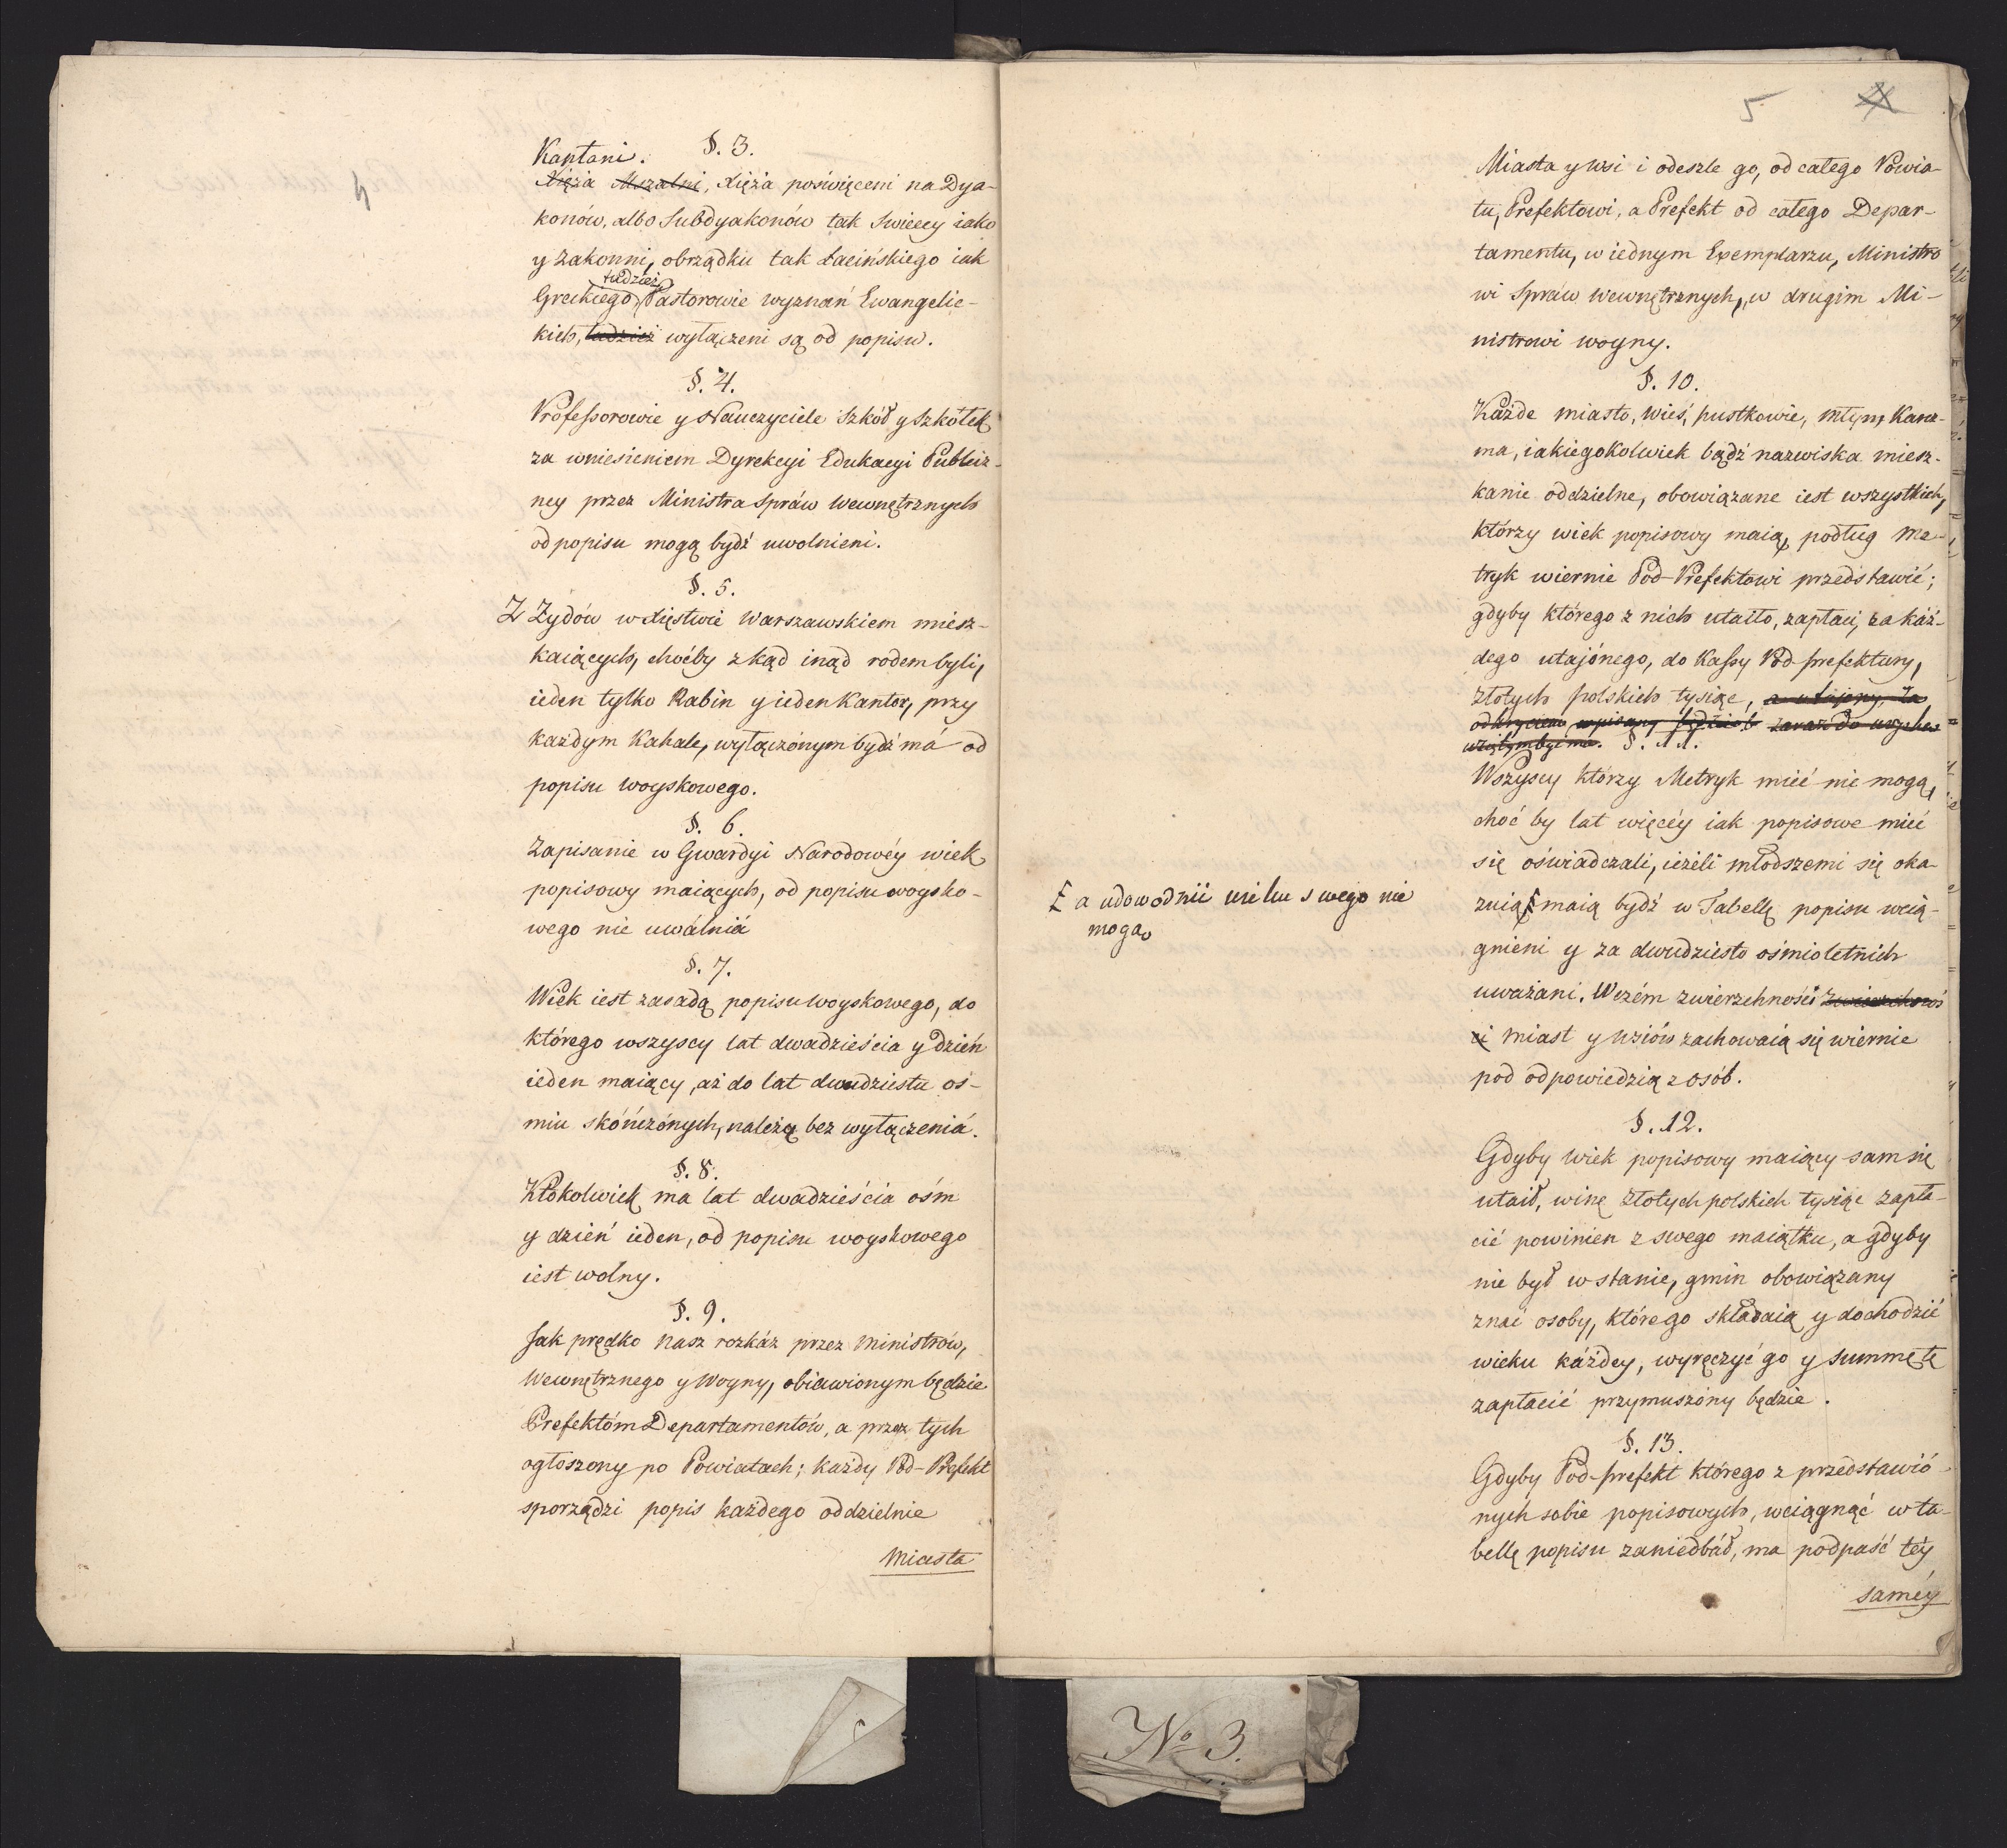 4
§. 3.
Kapłani.
Xięża Mszalni, Xięża poświęceni na Dya-
konów, albo Subdyakonów tak swieccy iako
y zakonni, obrządku tak Łacińskiego iak
tudzież
Greckiego, Pastorowie wyznań Ewangelic-
kich, tudzież wyłączeni są od popisu.
§. 4.
Professorowie y Nauczyciele Szkół y Szkółek
za wniesieniem Dyrekcyi Edukacyi Publicz-
ney przez Ministra Spráw Wewnętrznych
od popisu mogą bydź uwolnieni.
§. 5.
Z Żydów w Xięstwie Warszawskiem miesz-
kaiących, choćby zkąd inąd rodem byli,
ieden tylko Rabin y ieden Kantor, przy
każdym Kahale, wyłączónym bydź má od
popisu woyskowego.
§. 6.
Zapisanie w Gwardyi Narodowéy wiek
popisowy maiących, od popisu woysko-
wego nie uwálniá
§. 7.
Wiek iest zasadą popisu woyskowego, do
którego wszyscy lat dwadzieścia y dzień
ieden maiący, aż do lat dwudziestu oś-
miu skóńczónych, należą bez wyłączeniá.
§. 8.
Ktokolwiek ma lat dwadzieścia ośm
y dzień ieden, od popisu woyskowego
iest wolny.
§. 9.
Jak prędko Nasz rozkáz przez Ministrów,
Wewnętrznego y Woyny, obiawionym będzie
Prefektóm Departamentów, a przez tych
ogłoszony po Powiatach; każdy Pod-Prefekt
sporządzi popis każdego oddzielnie
Miasta
5
Miasta y wsi i odeszle go, od całego Powia-
tu, Prefektowi, a Prefekt od całego Depar-
tamentu, w iednym Exemplarzu, Ministro
wi Spráw Wewnętrznych, w drugim Mi-
nistrowi woyny.
§. 10.
Każde miasto, wieś, pustkowie, młyn, Karcz-
ma, iakiegokolwiek bądź nazwiska miesz-
kanie oddzielne, obowiązane iest wszystkich,
którzy wiek popisowy maią, podług Me-
tryk wiernie Pod-Prefektowi przedstawić;
gdyby którego z nich utaiło, zapłaci, za káż-
dego utajónego, do Kassy Pod-prefektury,
złotych polskich tysiąc, a utajony, za
odkryciem wpisany będzie b zaraz do woyska
wziętym być ma. §. 11.
Wszyscy którzy Metryk mieć nie mogą,
choć by lat więcéy iak popisowe mieć
się oświadczali, ieżeli młodszemi się oka-
zuią maią bydź w Tabellę popisu wcią-
gnieni y za dwudziesto ośmioletnich
uważani. Wczém zwierzchności zwierzchnoś
ci miast y wsiów zachowaią się wiernie
pod odpowiedzią z osób.
a udowodnić wieku swego nie
mogą
§. 12.
Gdyby wiek popisowy maiący sam się
utaił, winę złotych polskich tysiąc zapła-
cić powinien z swego maiątku, a gdyby
nie był w stanie, gmin obowiązany
znać osoby, którego składaią y dochodzić
wieku káżdey, wyręczyć go y summę tę
zapłacić przymuszóny będzie.
§. 13.
Gdyby Pod-prefekt którego z przedstawió-
nych sobie popisowych, wciągnąć w ta-
bellę popisu zaniedbáł, ma podpaść téy
saméy
No 3.